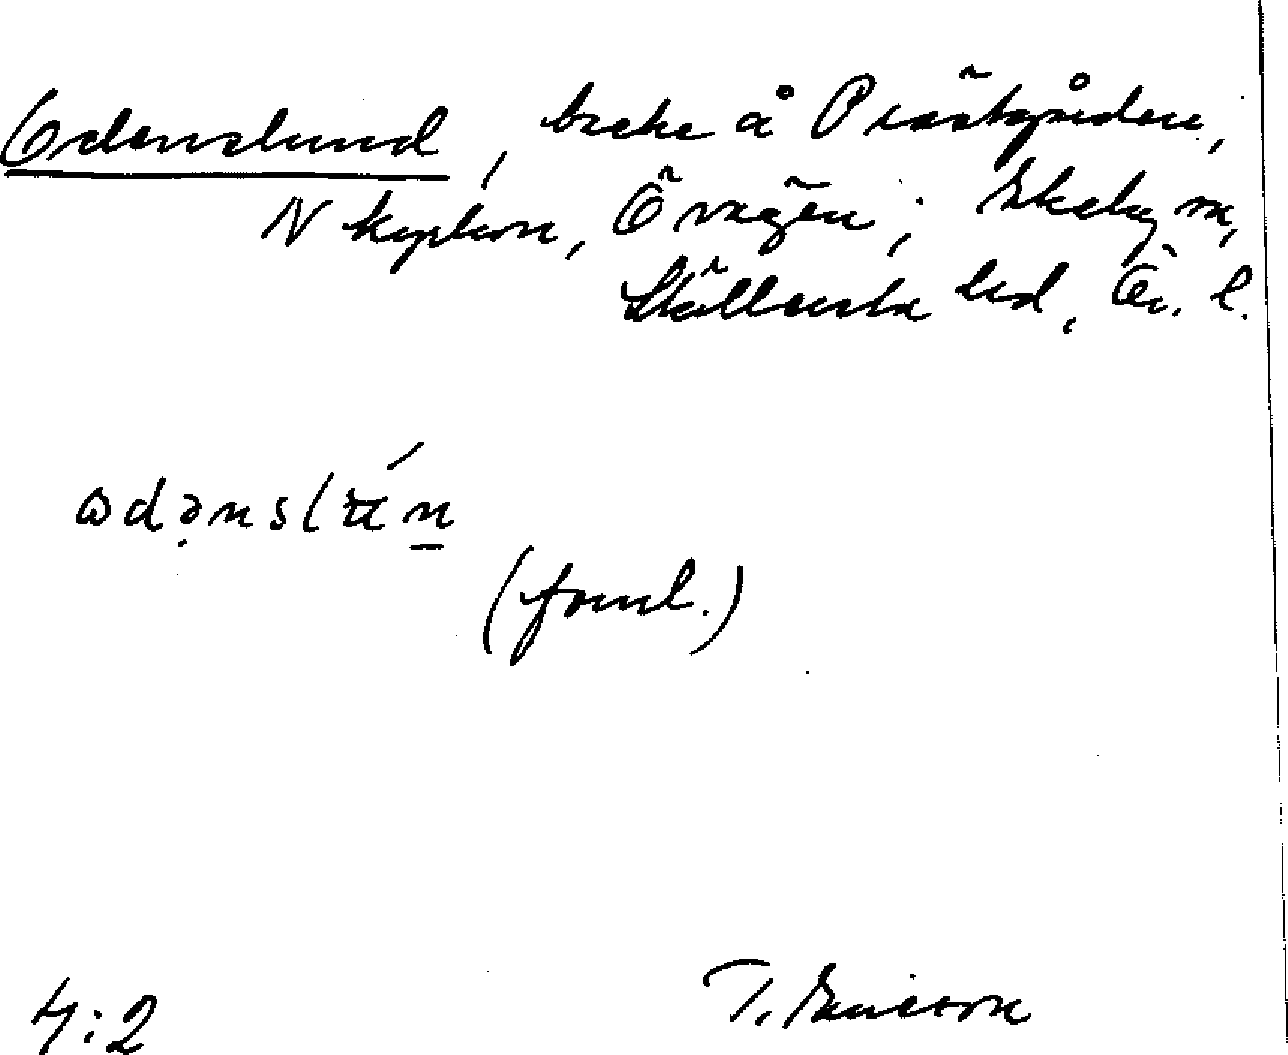 Odenslund, backe å Prästgården,
N kyrkan, Ö vägen; Ekeby sn,
Sköllersta hd, Ör. l.
ωdənslʉ́n
(forml.)
4:2 T. Ericsson